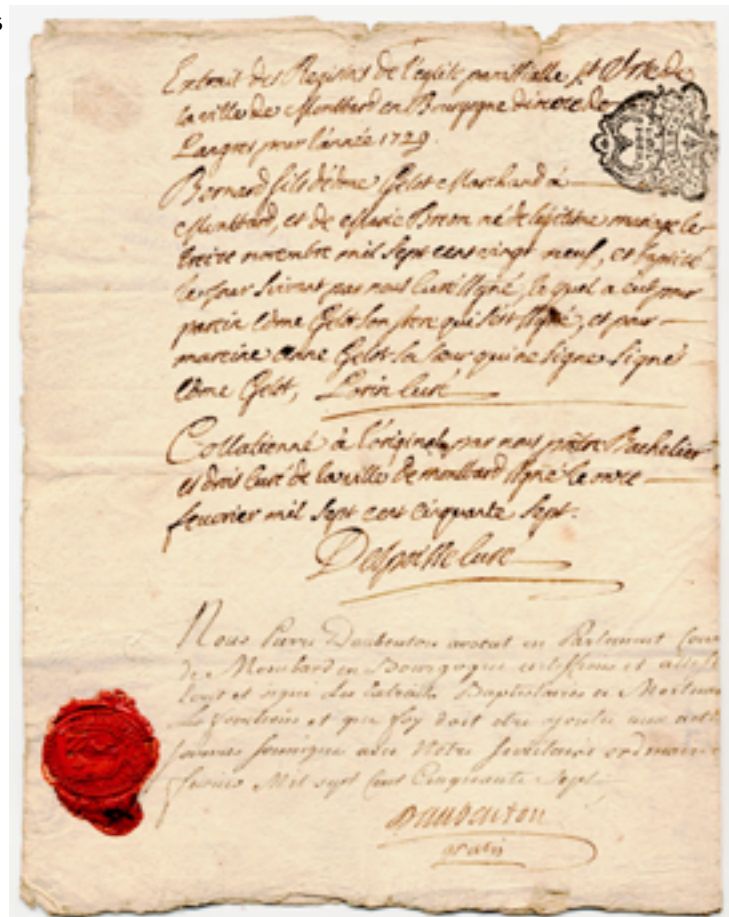 s
Extrait des Registres de l'eglise paroissialle st Urse de
la ville de Montbard en Bourgogne diocese de
Langres pour l'année 1729.
Bernard fils d'édme Gelot Marchand à
Montbard, et de Marie Breon né de légitime mariage le
treize novembre mil sept cent vingt neuf, et baptisé
le jour suivant par nous curé signé, lequel a eut pour
parein Edme Gelot son frere qui s'est signé, et pour
mareine Anne Gelot sa sœur qui ne signe signé
Edme Gelot, Lorin curé
Collationné à l'original par nous prêtre Bachelier
es droit curé de la ville de montbard signé le onze
feuvrier mil sept cent cinquante sept.
curé
Nous Pierre Daubenton avocat en Parlement
de Montbard en Bourgogne certiffions et
et signé les Extraits Baptistaires et Mortuaires
les fonctions et que foy doit etre ajoutée aux
avec Notre secretaire ordinaire
fevrier Mil sept Cent Cinquante Sept.
Daubenton
gratis